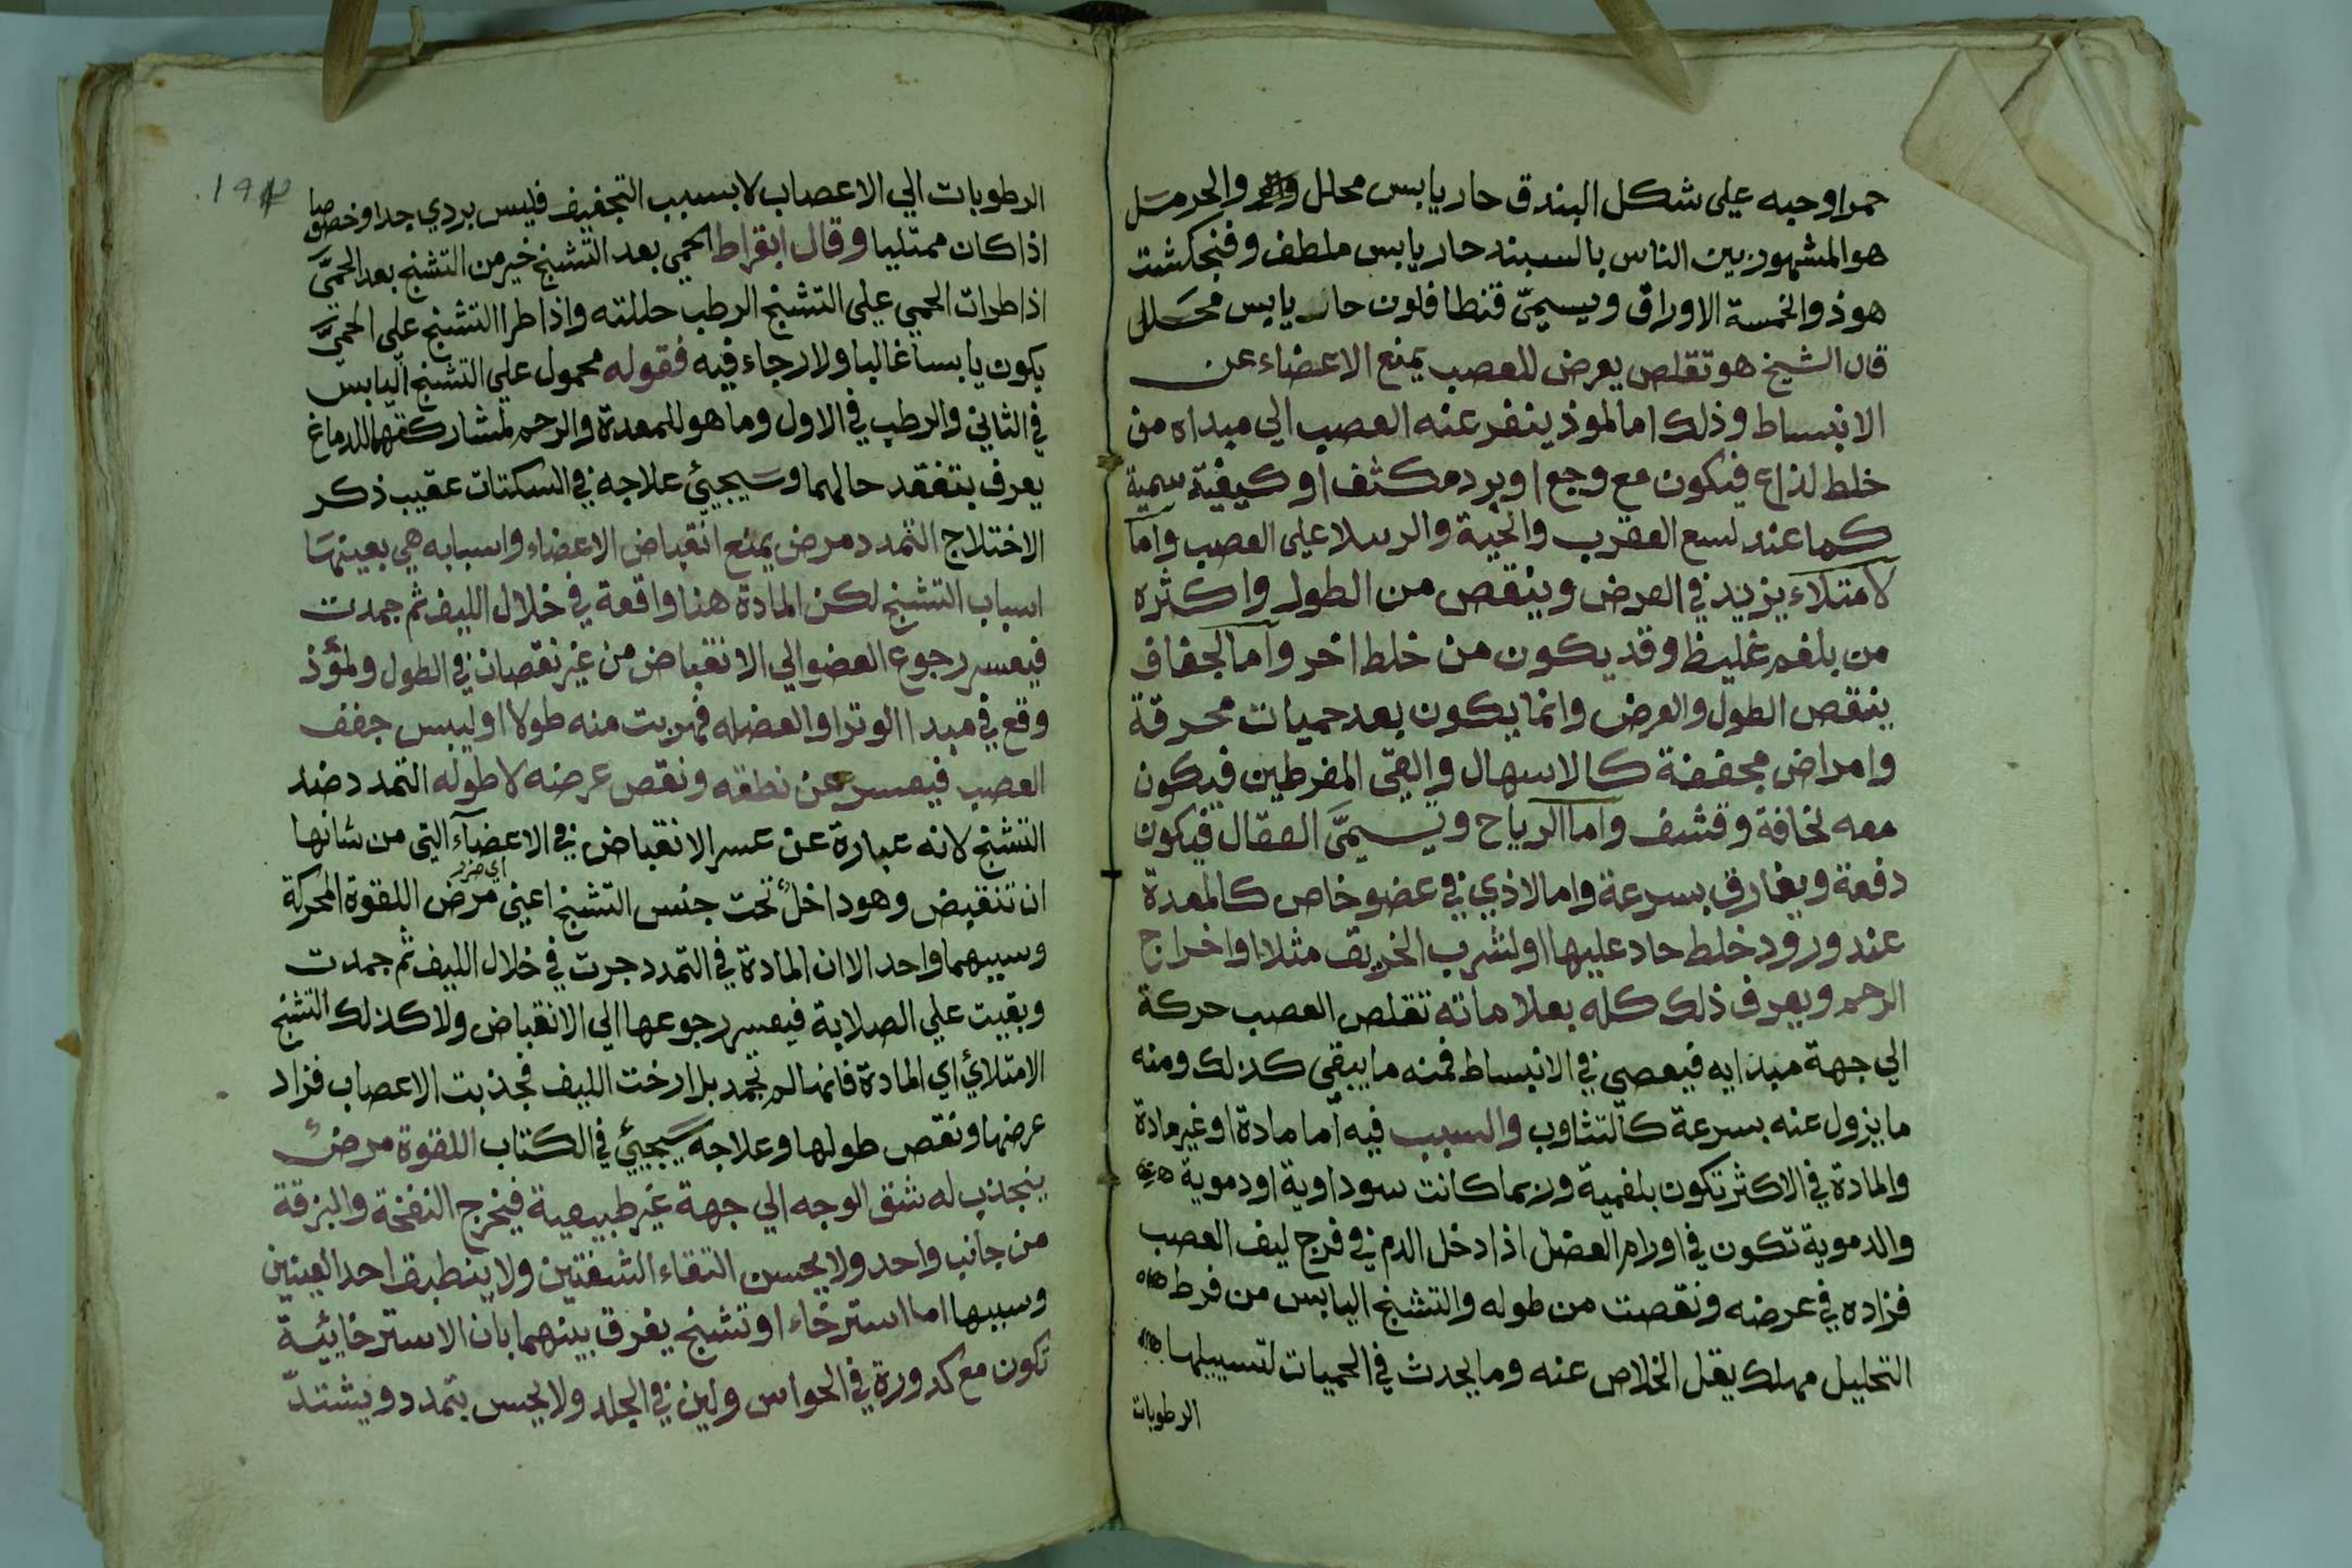 حمرا وحبه على شكل البندق حار يابس محلل والحرمسل
هو المشهور بين الناس بالسبند حار يابس ملطف وفنجكشت
هو ذو الخمسة الاوراق ويسمىّ قنطافلون حار يابس محلل
قال الشيخ هو تقلص يعرض للعصب يمنع الاعضاء عن
الانبساط وذلك اما لموذ ينفر عنه العصب الي مبداه من
خلط لذاع فيكون مع وجع او برد مكثف او كيفية سمية
كما عند لسع العقرب والحية والرسلا على العصب وآما
لامتلاء يزيد في العرض وينقص من الطول واكثره
من بلغم غليظ وقد يكون من خلط اخر وآما لجفاف
ينقص الطول والعرض وانما يكون بعد حميات محرقة
وامراض مجففة كالاسهال والقي المفرطين فيكون
معه نحافة وقشف وآما الرياح ويسمىَّ العقال فيكون
دفعة ويفارق بسرعة واما لاذي في عضو خاص كالمعدة
عند ورود خلط حاد عليها او لشرب الخربق مثلا او اخراج
الرحم ويعرف ذلك كله بعلاماته تقلص العصب حركة
الي جهة مبدايه فيعصي في الانبساط فمنه ما يبقى كذلك ومنه
ما يزول عنه بسرعة كالتثاوب والسبب فيه آما مادة او غير مادة
والمادة في الاكثر تكون بلغمية وربما كانت سوداوية او دموية
والدموية تكون في اورام العضل اذا دخل الدم في فرج ليف العصب
فزاده في عرضه ونقصت من طوله والتشنج اليابس من فرط
التحليل مهلك يقل الخلاص عنه وما يحدث في الحميات لتسييلها
الرطوبات
١٩٢
الرطوبات الي الاعصاب لا بسبب التجفيف فليس بردي جدا وخصوصا
اذا كان ممتليا وقال ابقراط الحمي بعد التشنج خير من التشنج بعد الحميَّ
اذا طرات الحمي علي التشنج الرطب حللته واذا طرا التشنج على الحميَّ
يكون يابسا غالبا ولا رجاء فيه فقوله محمول علي التشنج اليابس
في الثاني والرطب في الاول وما هو للمعدة والرحم لمشاركتهما للدماغ
يعرف بتفقد حالهما وسَيجيئ علاجه في السكتات عقيب ذكر
الاختلاج التمدد مرض يمنع انقباض الاعضاء واسبابه هي بعينهَا
اسباب التشنج لكن المادة هنا واقعة في خلال الليف ثم جمدت
فيعسر رجوع العضو الي الانقباض من غير نقصان في الطول ولمؤذ
وقع في مبدا الوتر او العضله فهربت منه طولا او ليبس جفف
العصب فيعسر عن نطقه ونقص عرضه لا طوله التمدد ضد
التشنج لانه عبارة عن عسر الانقباض في الاعضآء التي من شانها
اي ضرر
ان تنقبض وهو داخلٌ تحت جنس التشنج اعني مرض اللقوة المحركة
وسببهما واحد الا ان المادة في التمدد جرت في خلال الليف ثم جمدت
وبقيت علي الصلابة فيعسر رجوعها الي الانقباض ولا كذلك التشنج
الامتلائي اي المادة فانها لم تجمد بل ارخت الليف فجذبت الاعصاب فزاد
عرضها ونقص طولها وعلاجه سَيجيئ في الكتاب اللقوة مرضٌ
ينجذب له شق الوجه الي جهة غير طبيعية فيخرج النفخة والبزقة
من جانب واحد ولا يحسن التقاء الشفتين ولا ينطبق احد العينين
وسببها اما استرخاء او تشنج يفرق بينهما بان الاسترخائية
تكون مع كدورة في الحواس ولين في الجلد ولا يحس بتمدد ويشتدّ